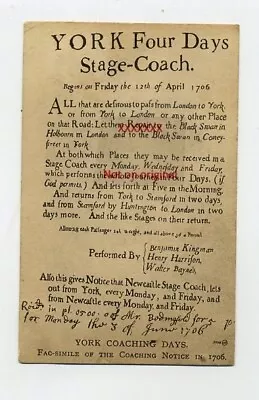 YORK Four Days
Stage-Coach.
Begins on Friday the 12th of April 1706
ALL that are desirous to pass from London to York,
or from York to London or any other Place
on that Road; Let them Repair to the Black Swan in
Holbourn in London and to the Black Swan in Coney-
street in York
At both which Places they may be received in a
Stage Coach every Monday, Wednesday and Friday,
which performs the whole Journey in Four Days. (if
God permits.) And sets forth at Five in the Morning,
And returns from York to Stamford in two days,
and from Stamford by Huntington to London in two
days more. And the like Stages on their return.
Allowing each Passenger 14l. weight, and all above 3d a Pound
Performed By
Benjamin Kingman
Henry Harrison,
Walter Bayne's,
Also this gives Notice that Newcastle Stage Coach, sets
out from York, every Monday, and Friday, and
from Newcastle every Monday, and Friday.
Recd in pt. 05.00. of Mr. Bodingfeld for 5 p
for Monday the 3 of June 1706
YORK COACHING DAYS.
FAC-SIMILE OF THE COACHING NOTICE IN 1706.
Not an original